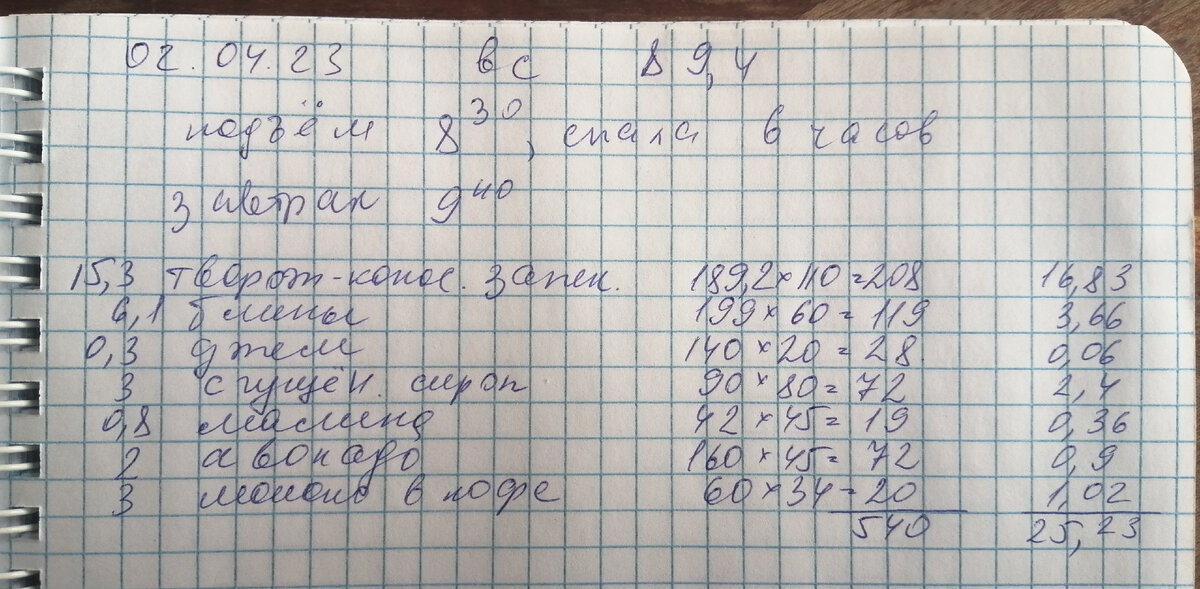 02.04.23 вс 89,4
подъём 8³⁰, спала 6 часов
завтрак 9⁴⁰
15,3 творож-кокос. запек. 189,2×110=208 16,83
6,1 блины 199×60=119 3,66
0,3 джем 140×20=28 0,06
3 сгущён. сироп 90×80=72 2,4
0,8 малина 42×45=19 0,36
2 авокадо 160×45=72 0,9
3 молоко в кофе 60×34=20 1,02
540 25,23